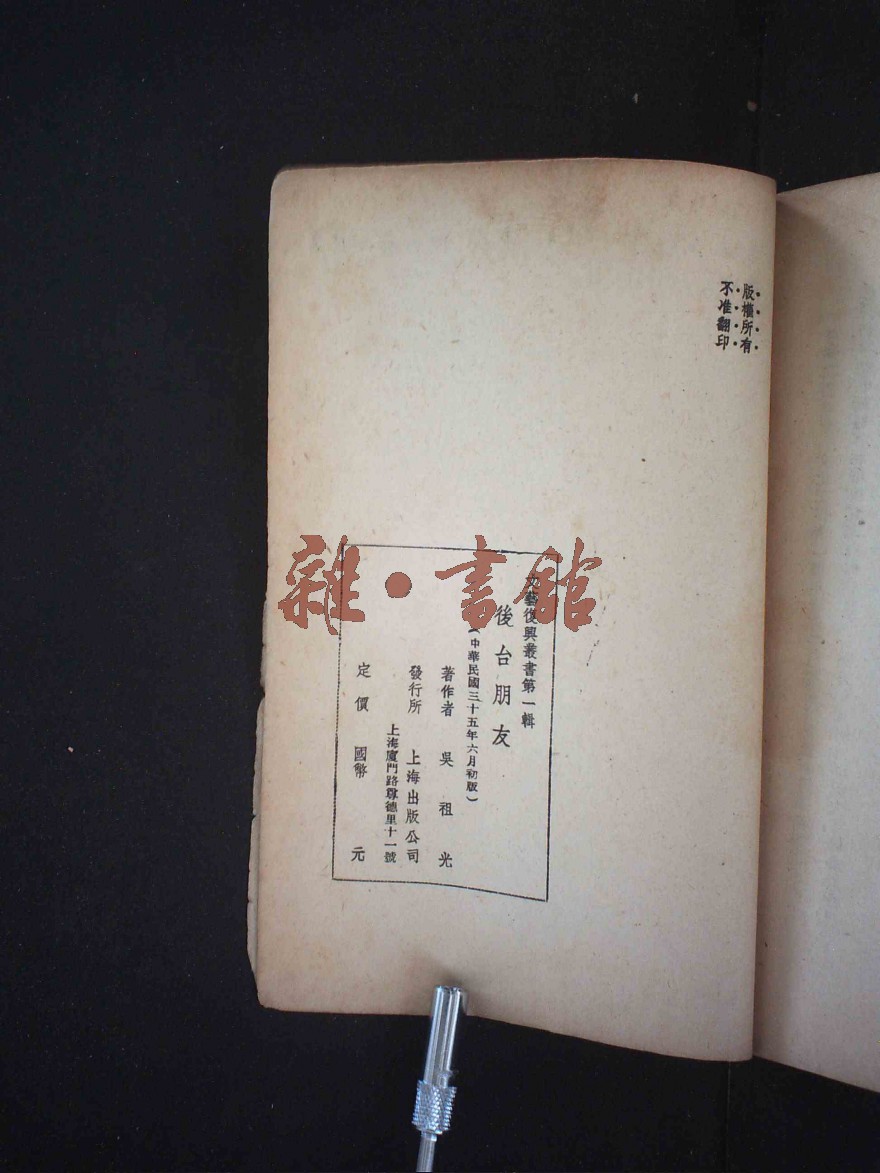 版權所有
不准翻印
文藝復興叢書第一輯
後台朋友
(中華民國三十五年六月初版)
著作者 吳祖光
發行所 上海出版公司
上海廈門路尊德里十一號
定價 國幣 元
雜·書館